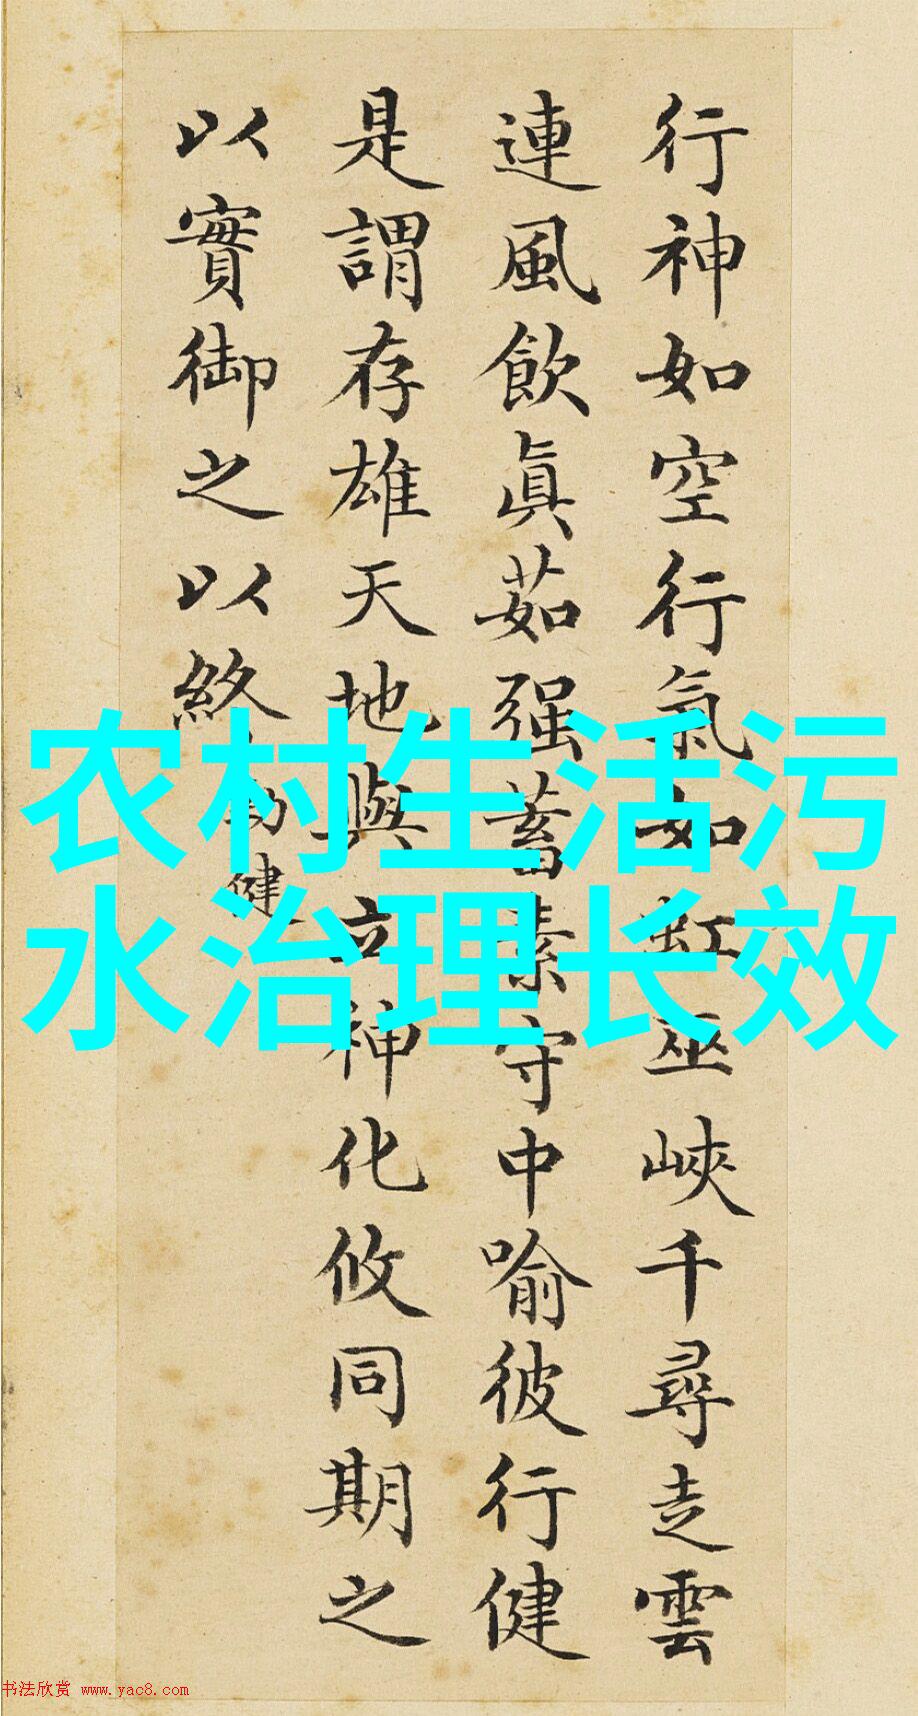 行神如空行氣如虹巫峽千尋走雲
連風飲眞茹强蓄素守中喻彼行健
是謂存雄天地與立神化攸同期之
以實御之以終
勁健
农村生活污
水治理长效
书法欣赏 www.yac8.com